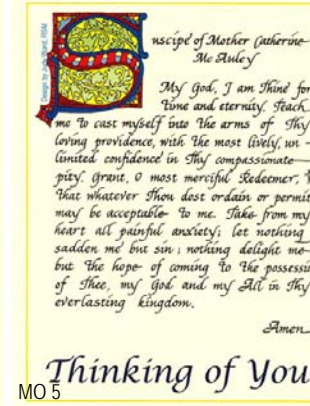 Design by Judy Ward, RSM
Suscipe of Mother Catherine
Mc Auley
My God, I am Thine for
time and eternity. Teach
me to cast myself into the arms of Thy
loving providence, with the most lively, un-
limited confidence in Thy compassionate
pity. Grant, O most merciful Redeemer,
that whatever Thou dost ordain or permit
may be acceptable to me. Take from my
heart all painful anxiety; let nothing
sadden me but sin; nothing delight me
but the hope of coming to the possessi
of Thee, my God and my All in Thy
everlasting kingdom.
Amen
Thinking of You
MO 5